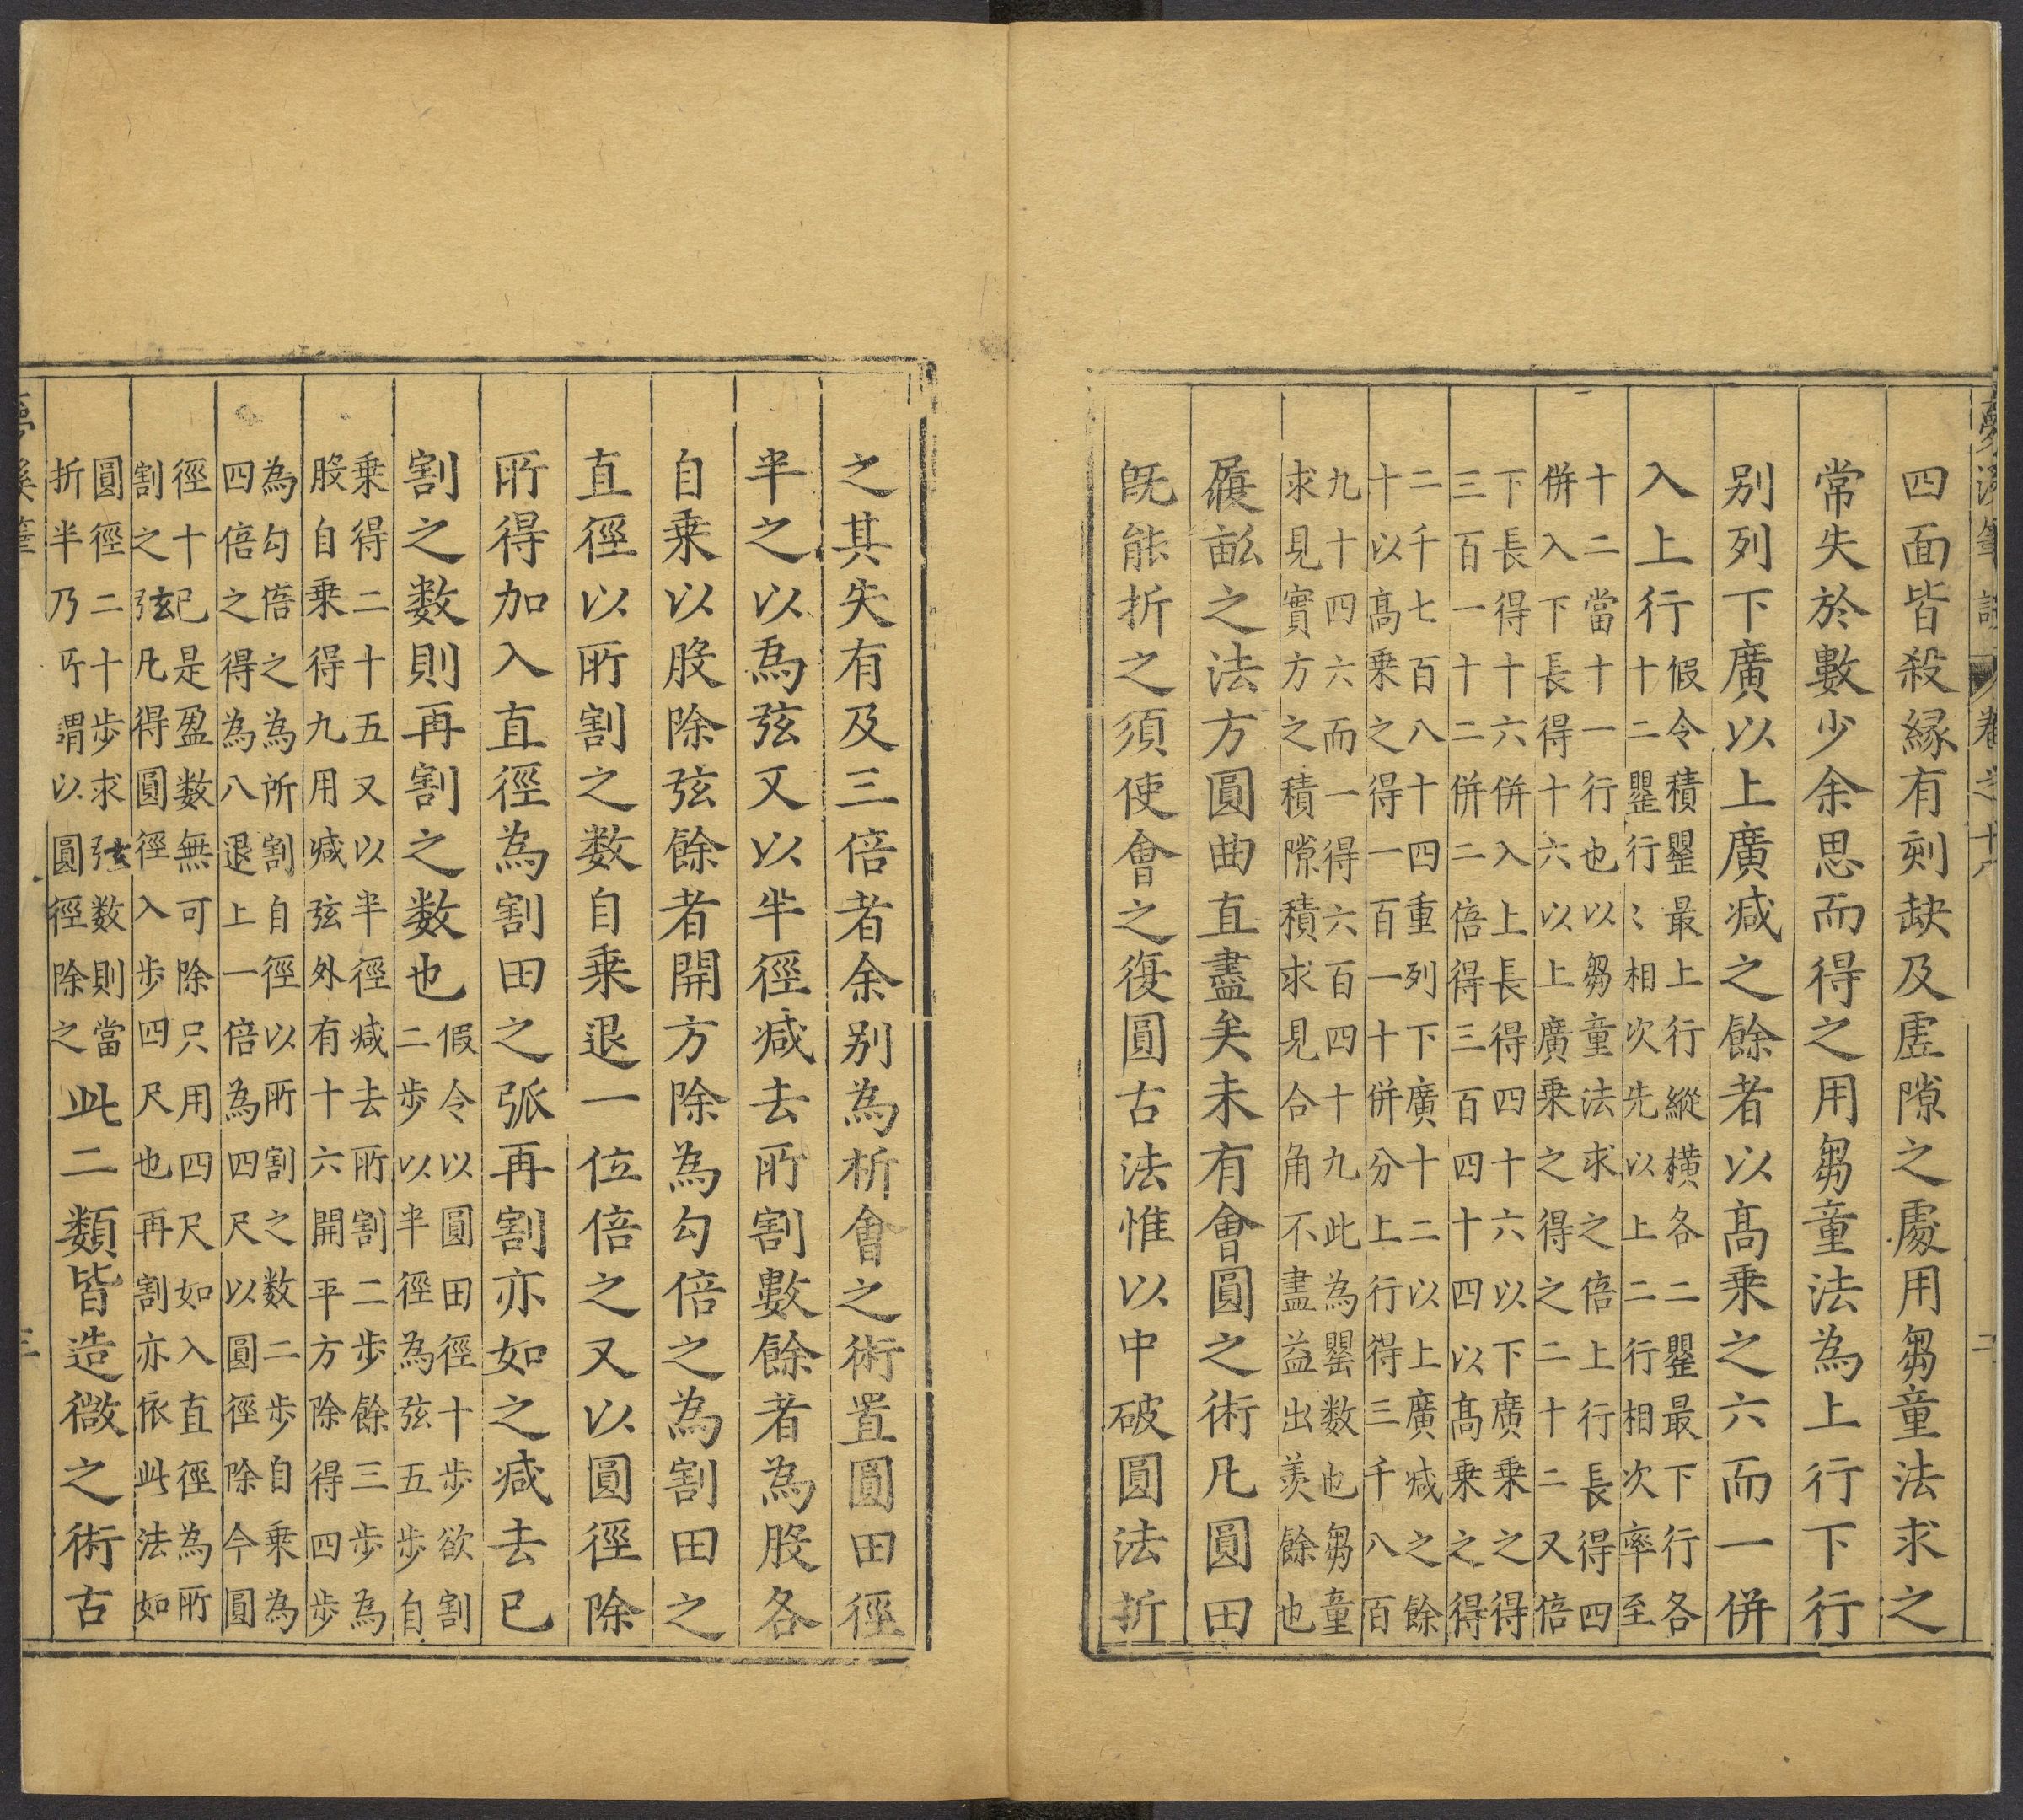 夢溪筆談 卷之十八 二
四面皆殺縁有刻缺及虗隙之處用芻童法求之
常失於數少余思而得之用芻童法為上行下行
别列下廣以上廣减之餘者以髙乗之六而一併
入上行
假令積罌最上行縱橫各二罌最下行各
十二罌行〻相次先以上二行相次率至
十二當十一行也以芻童法求之倍上行長得四
併入下長得十六以上廣乗之得之二十二又倍
下長得十六併入上長得四十六以下廣乗之得
三百一十二併二倍得三百四十四以髙乗之得
二千七百八十四重列下廣十二以上廣减之餘
十以髙乗之得一百一十併分上行得三千八百
九十四六而一得六百四十九此為罌数也芻童
求見實方之積隙積求見合角不盡益出羨餘也
履畝之法方圓曲直盡矣未有會圓之術凡圓田
既能折之須使會之復圓古法惟以中破圓法折
之其失有及三倍者余别為析會之術置圓田徑
半之以為弦又以半徑减去所割數餘者為股各
自乗以股除弦餘者開方除為勾倍之為割田之
直徑以所割之数自乗退一位倍之又以圓徑除
所得加入直徑為割田之弧再割亦如之减去已
割之数則再割之数也
假令以圓田徑十步欲割
二步以半徑為弦五步自
乗得二十五又以半徑减去所割二步餘三步為
股自乗得九用减弦外有十六開平方除得四步
為勾倍之為所割自徑以所割之数二步自乗為
四倍之得為八退上一倍為四尺以圓徑除今圓
徑十已是盈数無可除只用四尺如入直徑為所
割之弦凡得圓徑入步四尺也再割亦依此法如
圓徑二十步求弦数則當
折半乃所謂以圓徑除之
此二類皆造微之術古